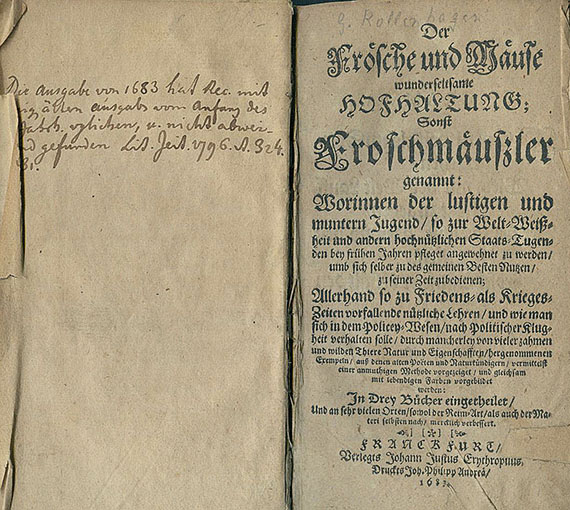 Die Ausgabe von 1683 hat Rec. mit
ältern Ausgabe vom Anfang des
u. nicht abwei-
gefunden Lit. Zeit. 1796. St. 324.
G. Rollenhagen
Der
Frösche und Mäuse
wunderseltsame
HOFHALTUNG;
Sonst
Froschmäuszler
genannt:
Worinnen der lustigen und
muntern Jugend / so zur Welt-Weiß-
heit und andern hochnützlichen Staats-Tugen-
den bey frühen Jahren pfleget angewehnet zu werden /
umb sich selber zu des gemeinen Besten Nutzen /
zu seiner Zeit zubedienen;
Allerhand so zu Friedens- als Krieges-
Zeiten vorfallende nützliche Lehren / und wie man
sich in dem Policey-Wesen / nach Politischer Klug-
heit verhalten solle / durch mancherley von vieler zahmen
und wilden Thiere Natur und Eigenschafften / hergenommenen
Exempeln / auß denen alten Poëten und Naturkündigern / vermittelst
einer anmuthigen Methode vorgezeiget / und gleichsam
mit lebendigen Farben vorgebildet
werden:
In Drey Bücher eingetheilet /
Und an sehr vielen Orten / sowol der Reim-Art / als auch der Ma-
teri selbsten nach / mercklich verbessert.
FRANCKFURT /
Verlegts Johann Justus Erythropilus,
Druckts Joh. Philipp Andreä /
1683.